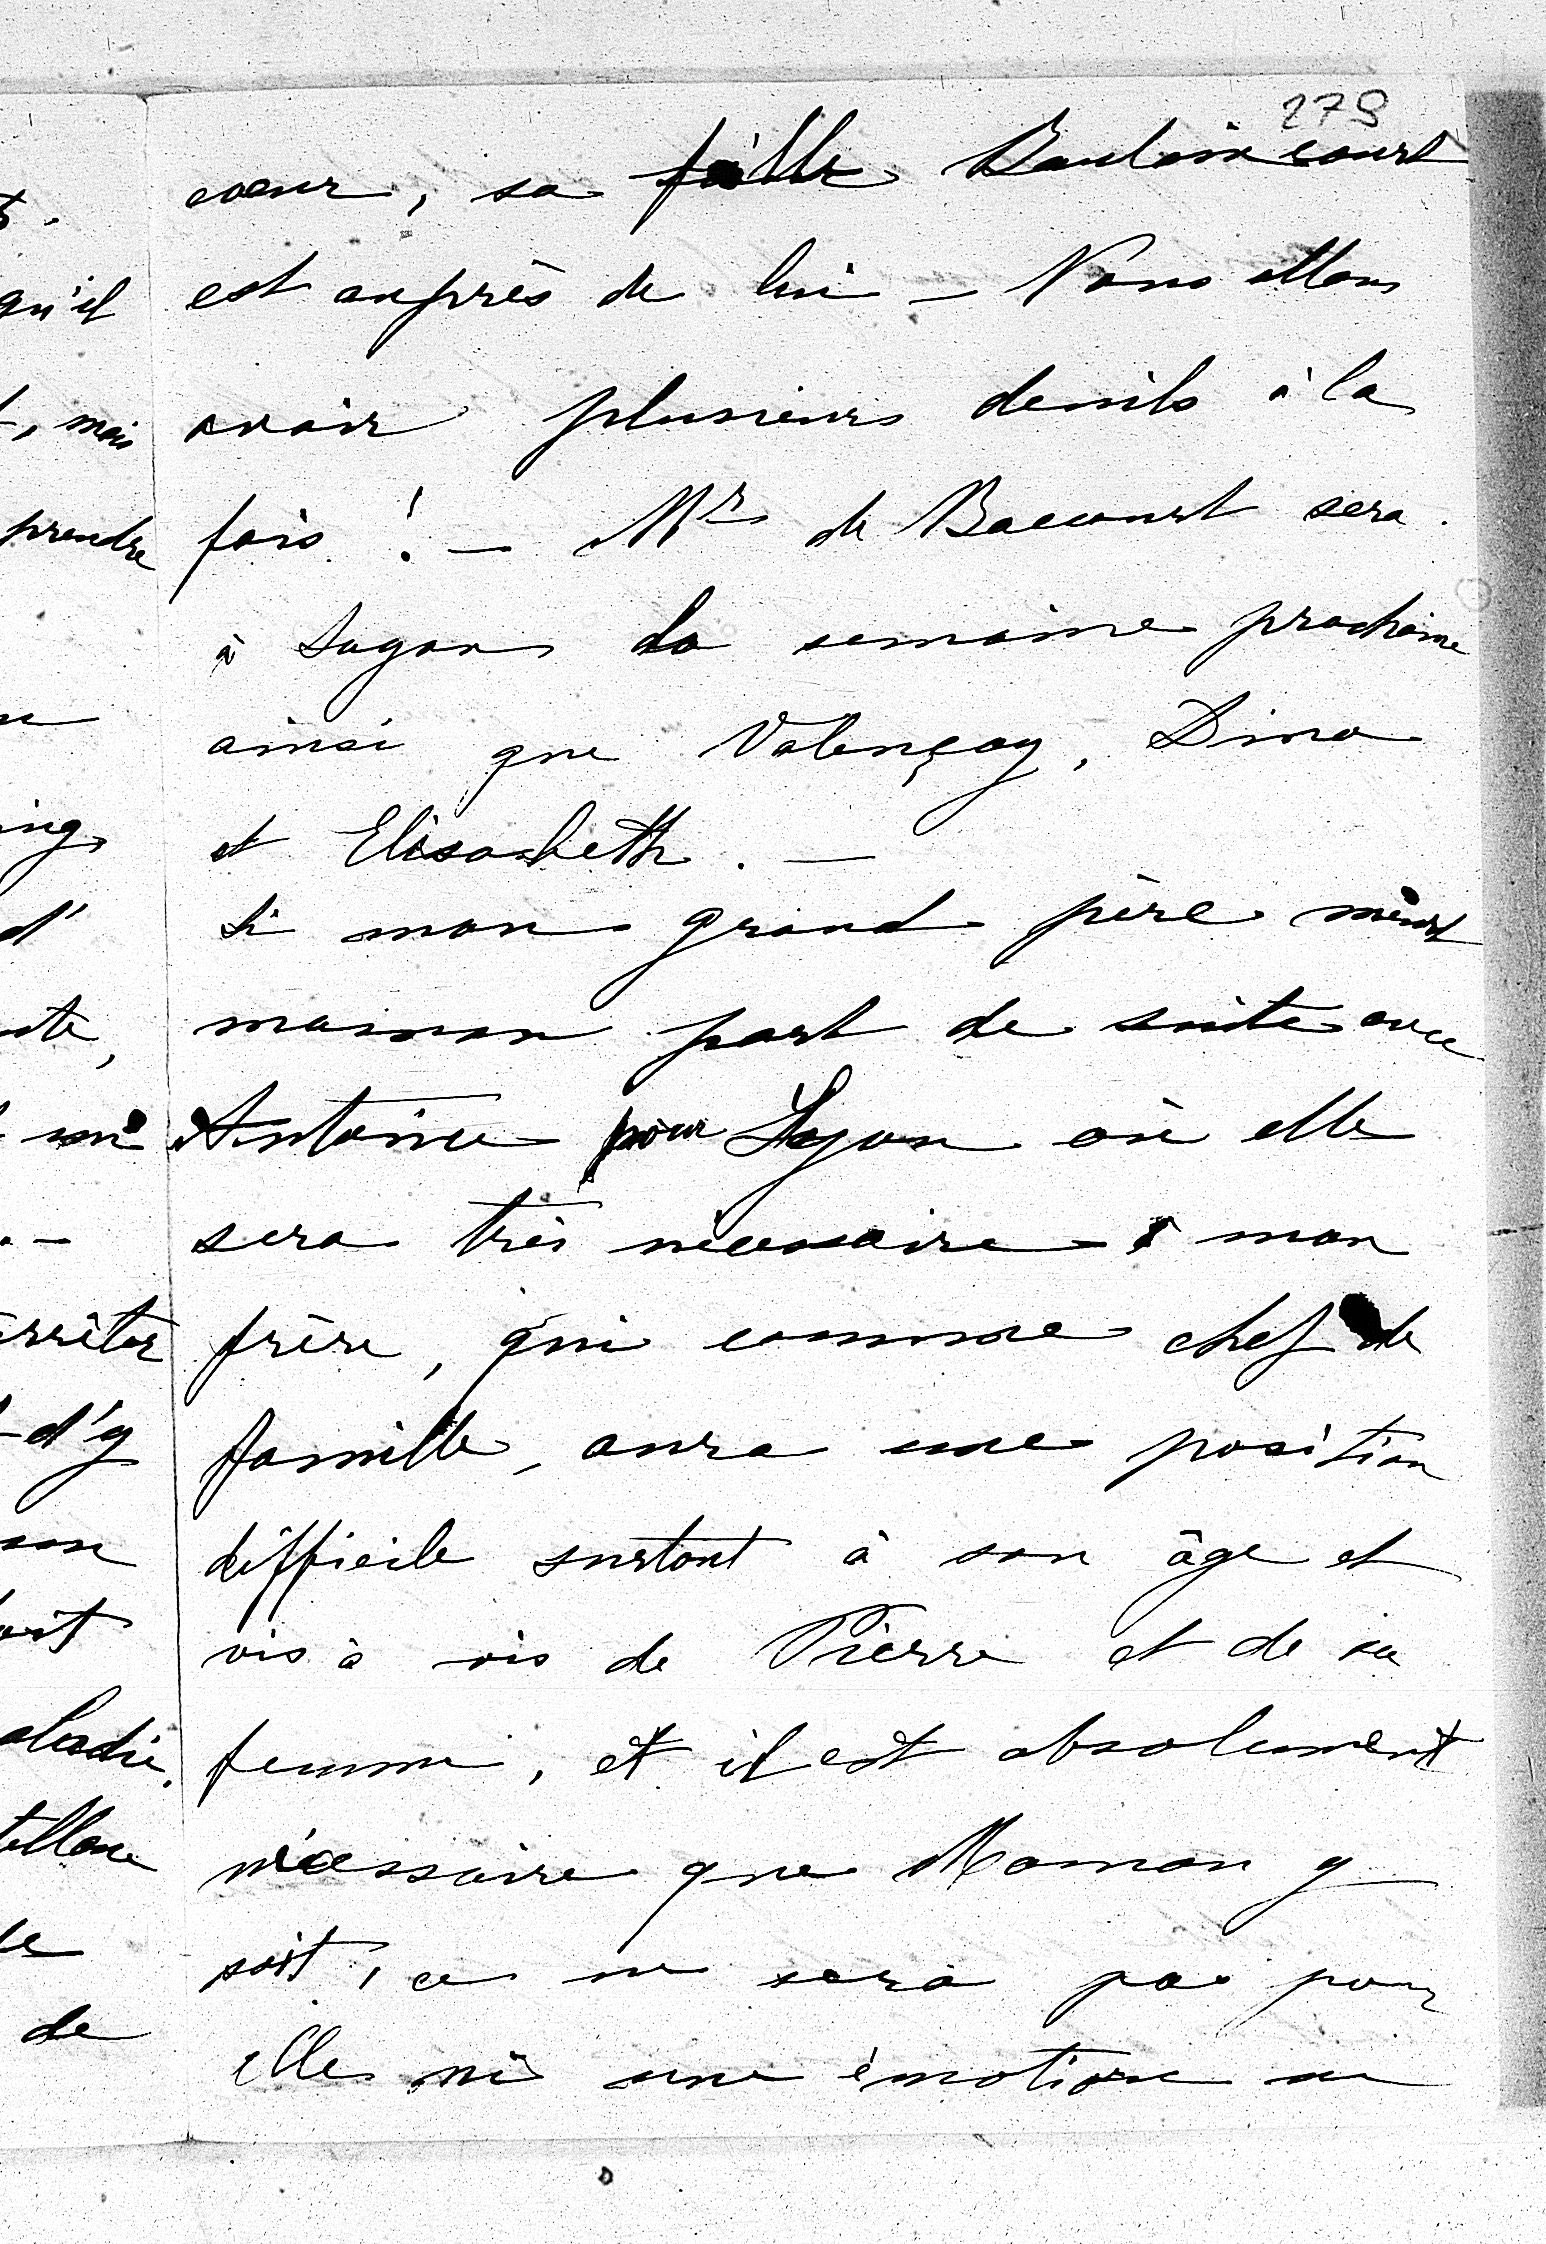 279
cœur, sa fille Beaulaincourt
est auprès de lui – Nous allons
avoir plusieurs deuils à la
fois ! – Mr de Bacourt sera
à Sagan la semaine prochaine
ainsi que Valençay, Dino
et Elisabeth. –
Si mon grand père meurt
maman part de suite avec
Antoine pour Lyon où elle
sera très nécessaire à mon
frère, qui comme chef de
famille, aura une position
difficile surtout à son âge et
vis à vis de Pierre et de sa
femme, et il est absolument
nécessaire que Maman y
soit, ce ne sera pas pour
elle ni une émotion ni
qu'il
, mais
prendre
d'
arrêter
d'y
de